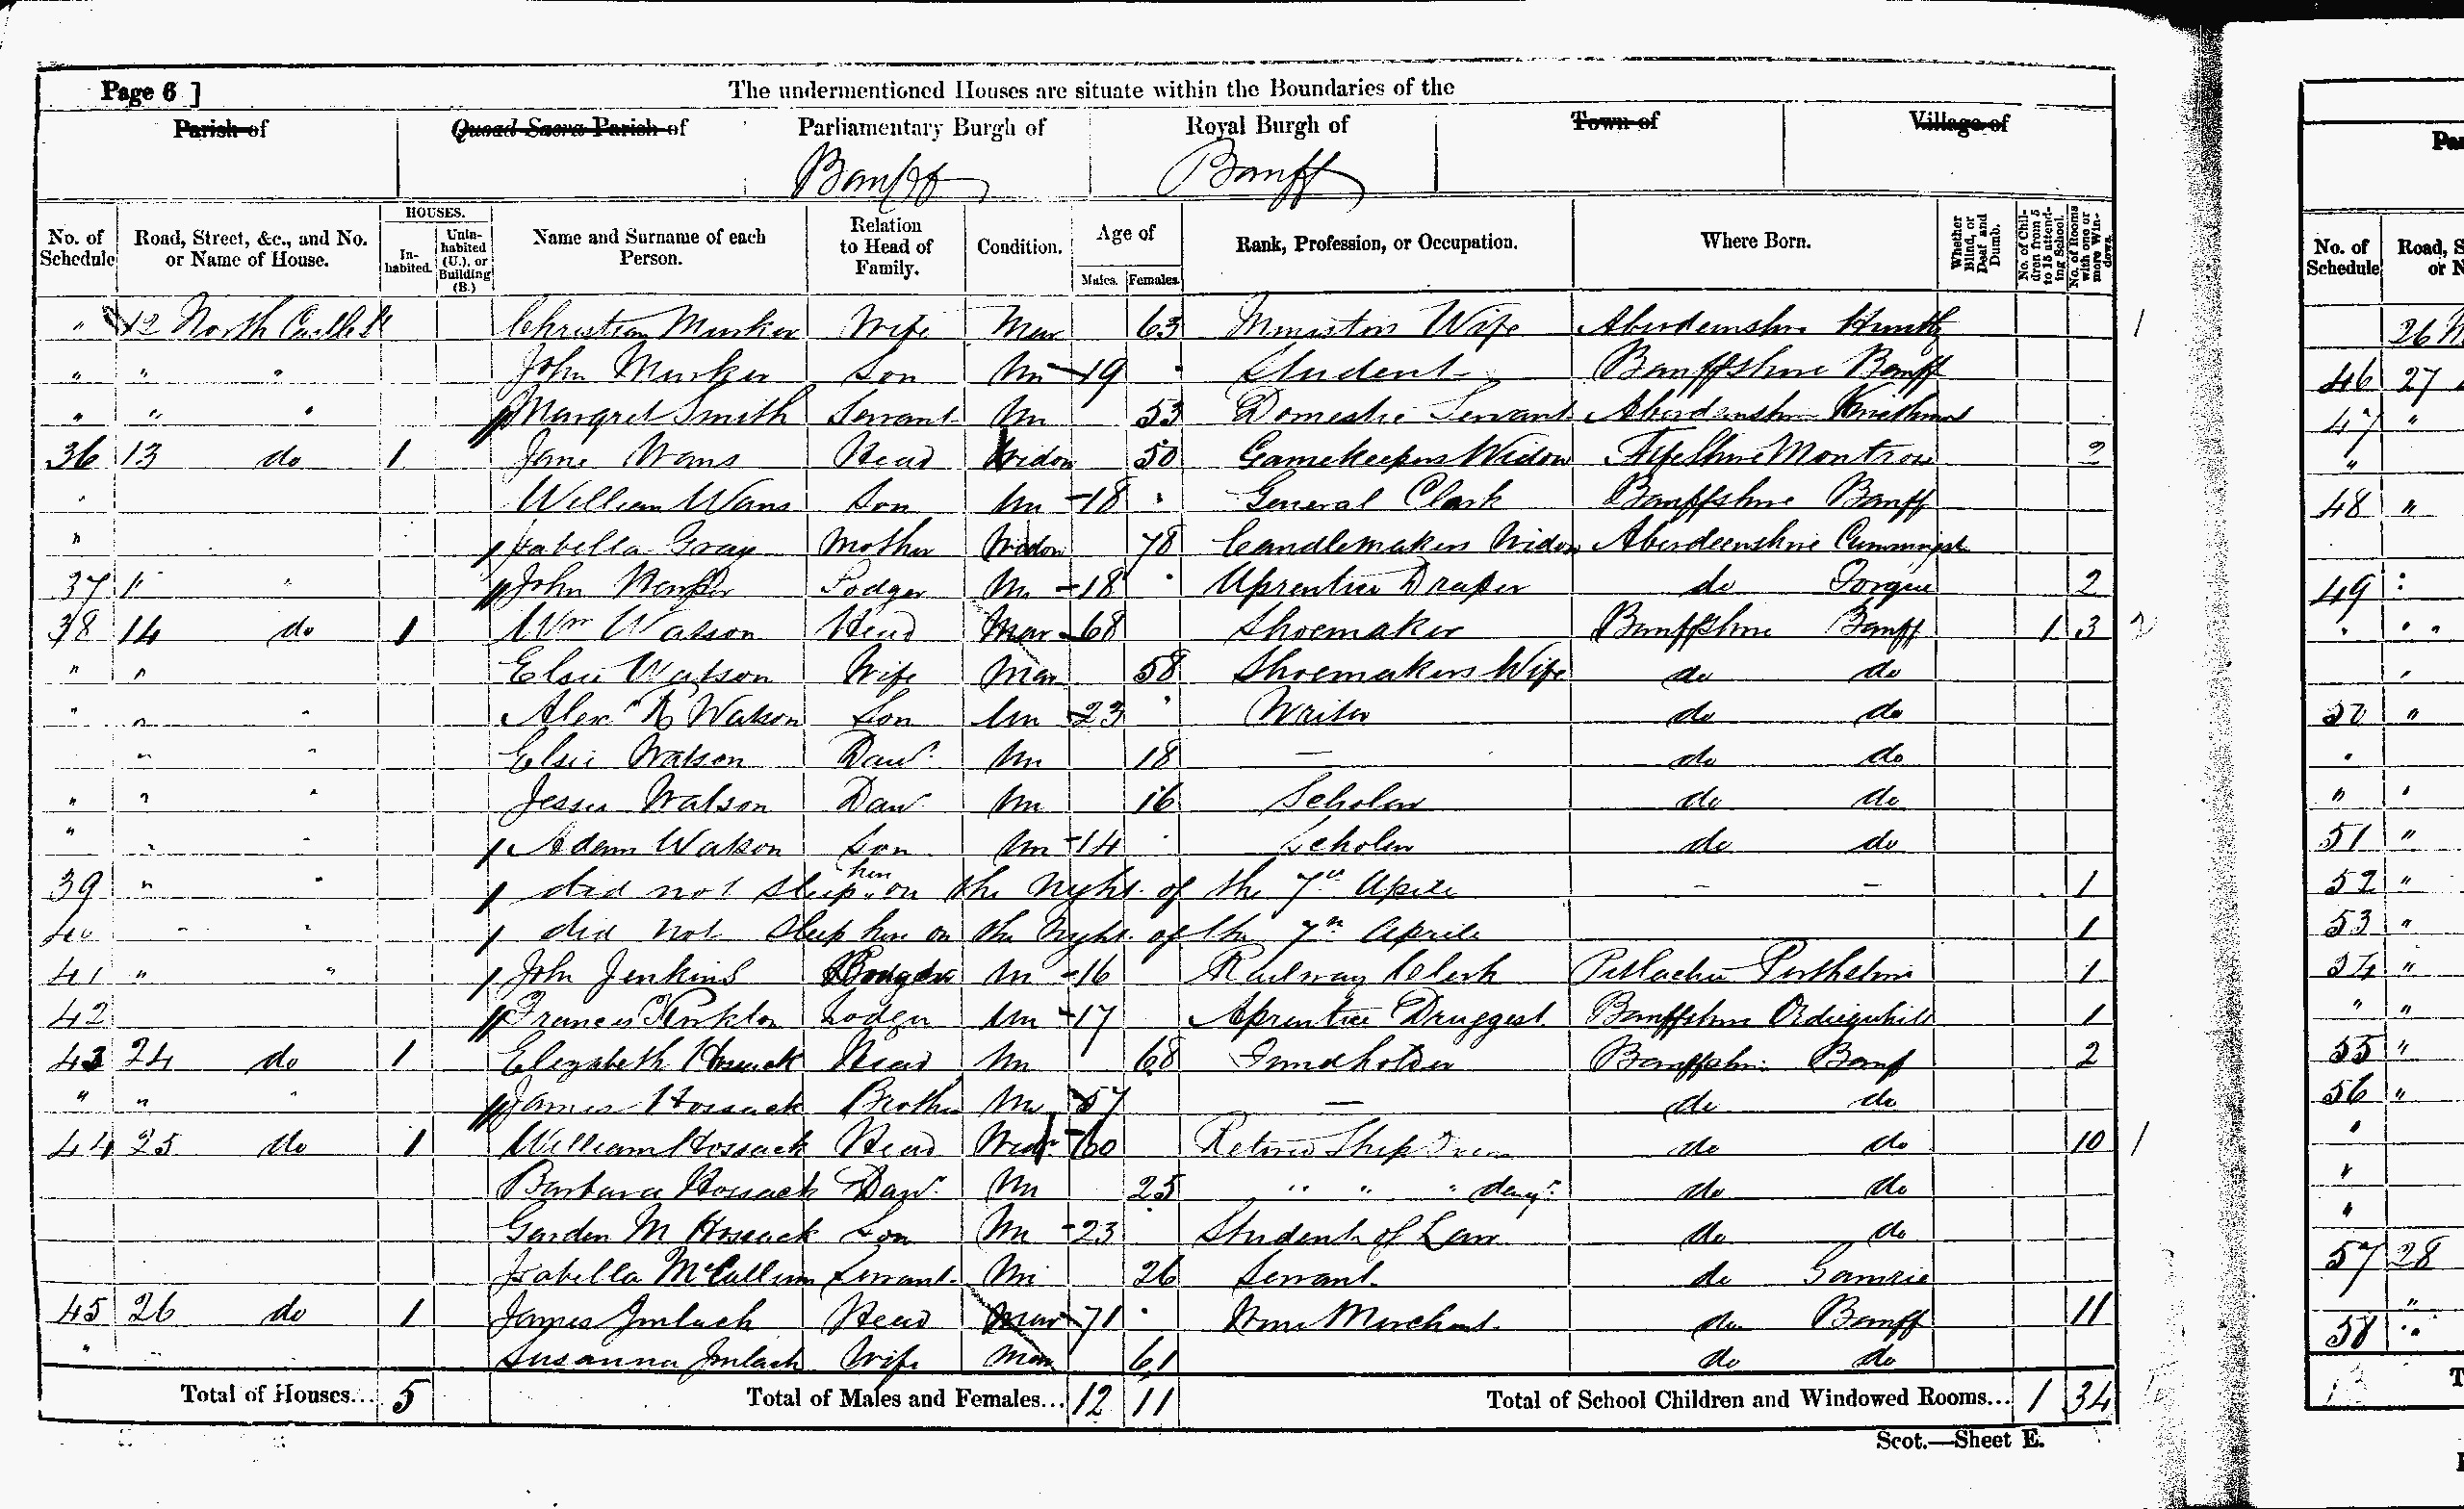 Page 6 ]
The undermentioned Houses are situate within the Boundaries of the
Parish of Quoad Sacra Parish of Parliamentary Burgh of Royal Burgh of Town of Village of
Banff Banff
No. of Schedule Road, Street, &c., and No. or Name of House. HOUSES. In-habited. Unin-habited (U.), or Building (B.) Name and Surname of each Person. Relation to Head of Family. Condition. Age of Males. Females. Rank, Profession, or Occupation. Where Born. Whether Blind, or Deaf and Dumb. No. of Chil-dren from 5 to 15 attend-ing School. No. of Rooms with one or more Win-dows.
" 12 North Castle St Christian Murker Wife Mar 63 Ministers Wife Aberdeenshire Huntly 1
" " " John Murker Son Un 19 Student Banffshire Banff
" " " Margret Smith Servant Un 53 Domestic Servant Aberdeenshire
36 13 do 1 Jane Wans Head Widow 50 Gamekeepers Widow Fifeshire Montrose 2
William Wans Son Un 18 General Clark Banffshire Banff
" Isabella Gray Mother Widow 78 Candlemakers Widow Aberdeenshire
37 " " John Lodger Un 18 Aprentice Draper do Forgue 2
38 14 do 1 Wm Watson Head Mar 68 Shoemaker Banffshire Banff 1 3 2
" " Elsie Watson Wife Mar 58 Shoemakers Wife do do
" " " Alexr R Watson Son Un 23 Writer do do
" " Elsie Watson Daur 18 — do do
" " " Jessie Watson Daur Un 16 Scholar do do
" " " Adam Watson Son Un 14 Scholar do do
39 " " did not sleep here on the Night of the 7th Aprile - - 1
40 " " did not sleep here on the Night of the 7th Aprile 1
41 " " John Jenkins Un 16 Railway Clerk Perthshire 1
42 Francis Lodger Un 17 Aprentice Druggest Banffshire Ordiquhill 1
43 24 do 1 Elizabeth Hossack Head Un 68 Fundholder Banffshire Banff 2
" " " James Hossack Brother Un 57 — do do
44 25 do 1 William Hossack Head Widr 60 Retired Ship do do 10 1
Barbara Hossack Daur Un 25 " " " daugr do do
Garden M Hossack Son Un 23 Student of Law do do
Isabella McCallum Servant Un 26 Servant do Gamrie
45 26 do 1 James Imlach Head Mar 71 Wine Merchant do Banff 11
" Susanna Imlach Wife Mar 61 do do
Total of Houses... 5 Total of Males and Females... 12 11 Total of School Children and Windowed Rooms... 1 34
Scot.—Sheet E.
No. of Schedule
26
46 27
47 "
"
48 "
49
50 "
"
51 "
52 "
53 "
54 "
" "
55 "
56 "
57 28
"
58